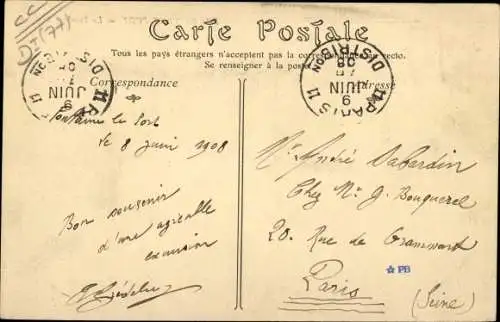 CC
DI(77)
Carte Postale
Tous les pays étrangers n'acceptent pas la correspondance au recto.
Se renseigner à la poste
Correspondance
Adresse
DISTRIBON
11
9
JUIN
PARIS 11
DISTRIBON
08
9
JUIN
Fontaine le Port
le 8 juin 1908
Bon souvenir
d'une agréable
excursion
Mr André Dabardin
Chez Mr J. Bouquerel
20. Rue de Grammont
Paris
(Seine)
PB